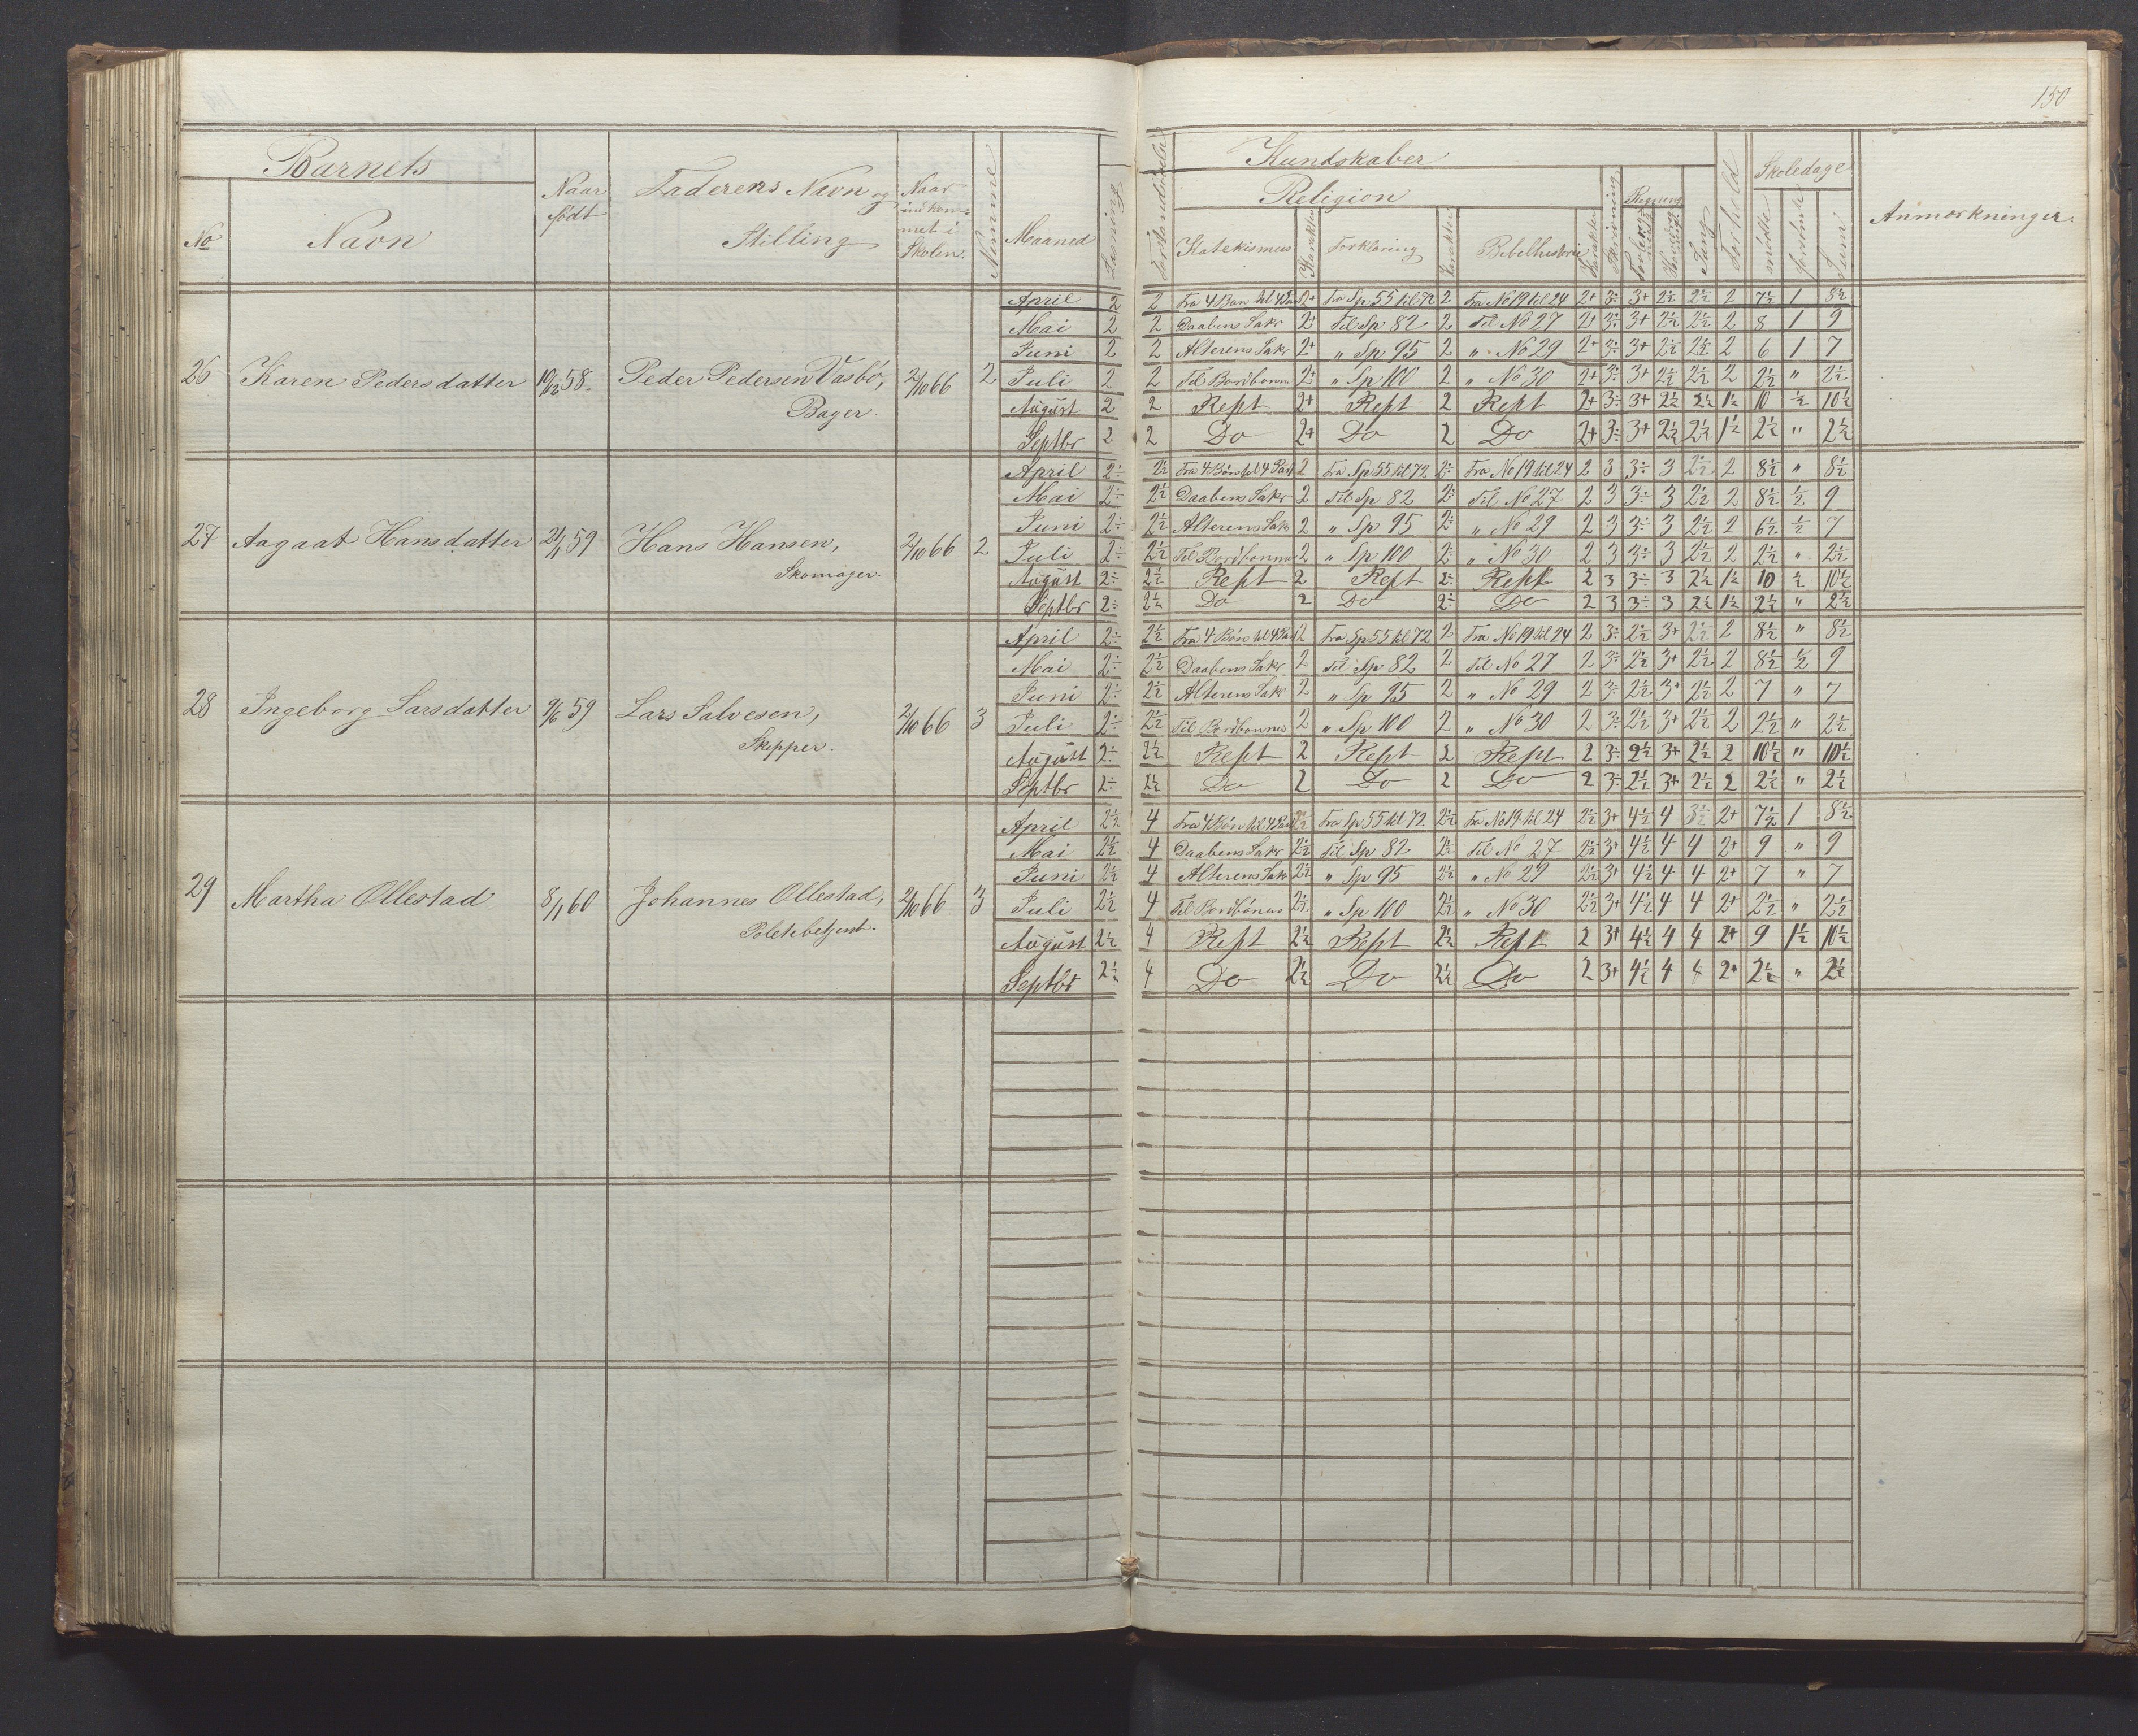 150
Barnets
No
Navn
Naar født
Faderens Navn og Stilling
Naar indkommet i Skolen.
Nummer
Maaned
Læsning
Forstandsøvelse
Kundskaber
Religion
Katekismus
Karakter
Forklaring
Karakter
Bibelhistorie
Karakter
Skrivning
Regning
Sang
Forhold
Skoledage
mødte
forsømte
Sum
Anmærkninger.
26 Karen Pedersdatter 19/12 58. Peder Pedersen Vasbø, Bager. 2/10 66 2
April 2 2 Fra 4 Bøn til 4 Part 2+ Fra Sp 55 til 72 2 Fra No 19 til 24 2+ 3÷ 3+ 2½ 2½ 2 7½ 1 8½
Mai 2 2 Daabens Sakr 2+ Til Sp 82 2 Til No 27 2+ 3÷ 3+ 2½ 2½ 2 8 1 9
Juni 2 2 Alterens Sakr 2+ " Sp 95 2 " No 29 2+ 3÷ 3+ 2½ 2½ 2 6 1 7
Juli 2 2 Til Bordbønne 2+ " Sp 100 2 " No 30 2+ 3÷ 3+ 2½ 2½ 2 2½ " 2½
August 2 2 Rept 2+ Rept 2 Rept 2+ 3÷ 3+ 2½ 2½ 1½ 10 ½ 10½
Septbr 2 2 Do 2+ Do 2 Do 2+ 3÷ 3+ 2½ 2½ 1½ 2½ " 2½
27 Aagaat Hansdatter 21/1 59 Hans Hansen, Skomager. 2/10 66 2
April 2÷ 2½ Fra 4 Bøn til 4 Part 2 Fra Sp 55 til 72 2÷ Fra No 19 til 24 2 3 3÷ 3 2½ 2 8½ " 8½
Mai 2÷ 2½ Daabens Sakr 2 Til Sp 82 2÷ Til No 27 2 3 3÷ 3 2½ 2 8½ ½ 9
Juni 2÷ 2½ Alterens Sakr 2 " Sp 95 2÷ " No 29 2 3 3÷ 3 2½ 2 6½ ½ 7
Juli 2÷ 2½ Til Bordbønne 2 " Sp 100 2÷ " No 30 2 3 3÷ 3 2½ 2 2½ " 2½
August 2÷ 2½ Rept 2 Rept 2÷ Rept 2 3 3÷ 3 2½ 1½ 10 ½ 10½
Septbr 2÷ 2½ Do 2 Do 2÷ Do 2 3 3÷ 3 2½ 1½ 2½ " 2½
28 Ingeborg Larsdatter 9/6 59 Lars Salvesen, Skipper. 2/10 66 3
April 2÷ 2½ Fra 4 Bøn til 4 Part 2 Fra Sp 55 til 72 2 Fra No 19 til 24 2 3÷ 2½ 3+ 2½ 2 8½ " 8½
Mai 2÷ 2½ Daabens Sakr 2 Til Sp 82 2 Til No 27 2 3÷ 2½ 3+ 2½ 2 8½ ½ 9
Juni 2÷ 2½ Alterens Sakr 2 " Sp 95 2 " No 29 2 3÷ 2½ 3+ 2½ 2 7 " 7
Juli 2÷ 2½ Til Bordbønne 2 " Sp 100 2 " No 30 2 3÷ 2½ 3+ 2½ 2 2½ " 2½
August 2÷ 2½ Rept 2 Rept 2 Rept 2 3÷ 2½ 3+ 2½ 2 10½ " 10½
Septbr 2÷ 2½ Do 2 Do 2 Do 2 3÷ 2½ 3+ 2½ 2 2½ " 2½
29 Martha Ollestad 8/1 60 Johannes Ollestad, Politibetjent. 2/10 66 3
April 2½ 4 Fra 4 Bøn til 4 Part 2½ Fra Sp 55 til 72 2½ Fra No 19 til 24 2½ 3+ 4½ 4 3½ 2+ 7½ 1 8½
Mai 2½ 4 Daabens Sakr 2½ Til Sp 82 2½ Til No 27 2½ 3+ 4½ 4 4 2+ 9 " 9
Juni 2½ 4 Alterens Sakr 2½ " Sp 95 2½ " No 29 2½ 3+ 4½ 4 4 2+ 7 " 7
Juli 2½ 4 Til Bordbønne 2½ " Sp 100 2½ " No 30 2½ 3+ 4½ 4 4 2+ 2½ " 2½
August 2½ 4 Rept 2½ Rept 2½ Rept 2 3+ 4½ 4 4 2+ 9 1½ 10½
Septbr 2½ 4 Do 2½ Do 2½ Do 2 3+ 4½ 4 4 2+ 2½ " 2½